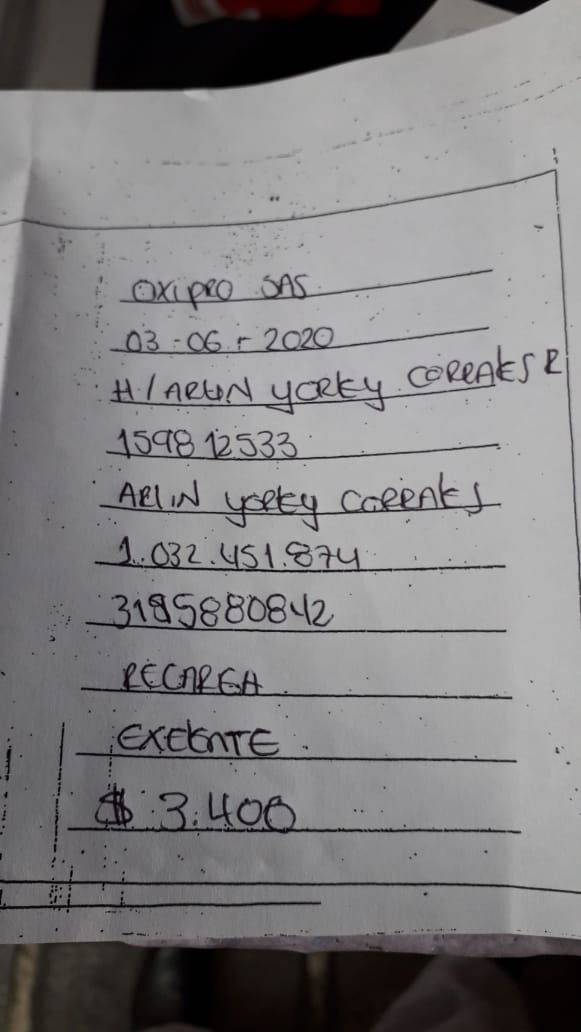 OXIPRO SAS
03-06-2020
H/ARLIN YORKY CORRALES R
1598 12533
ARLIN YORKY CORRALES
1.032.451.874
3195880842
RECARGA
EXELENTE
$ 3.400